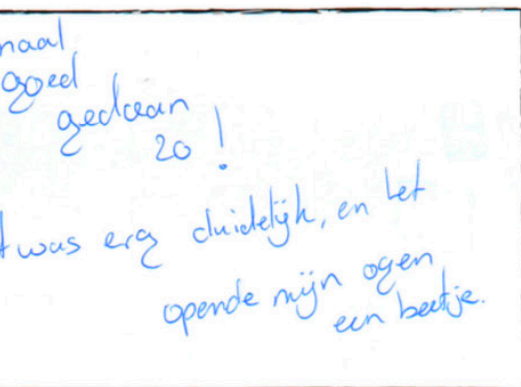 naal
goed
gedaan
20 !
t was erg duidelijk, en het
opende mijn ogen
een beetje.